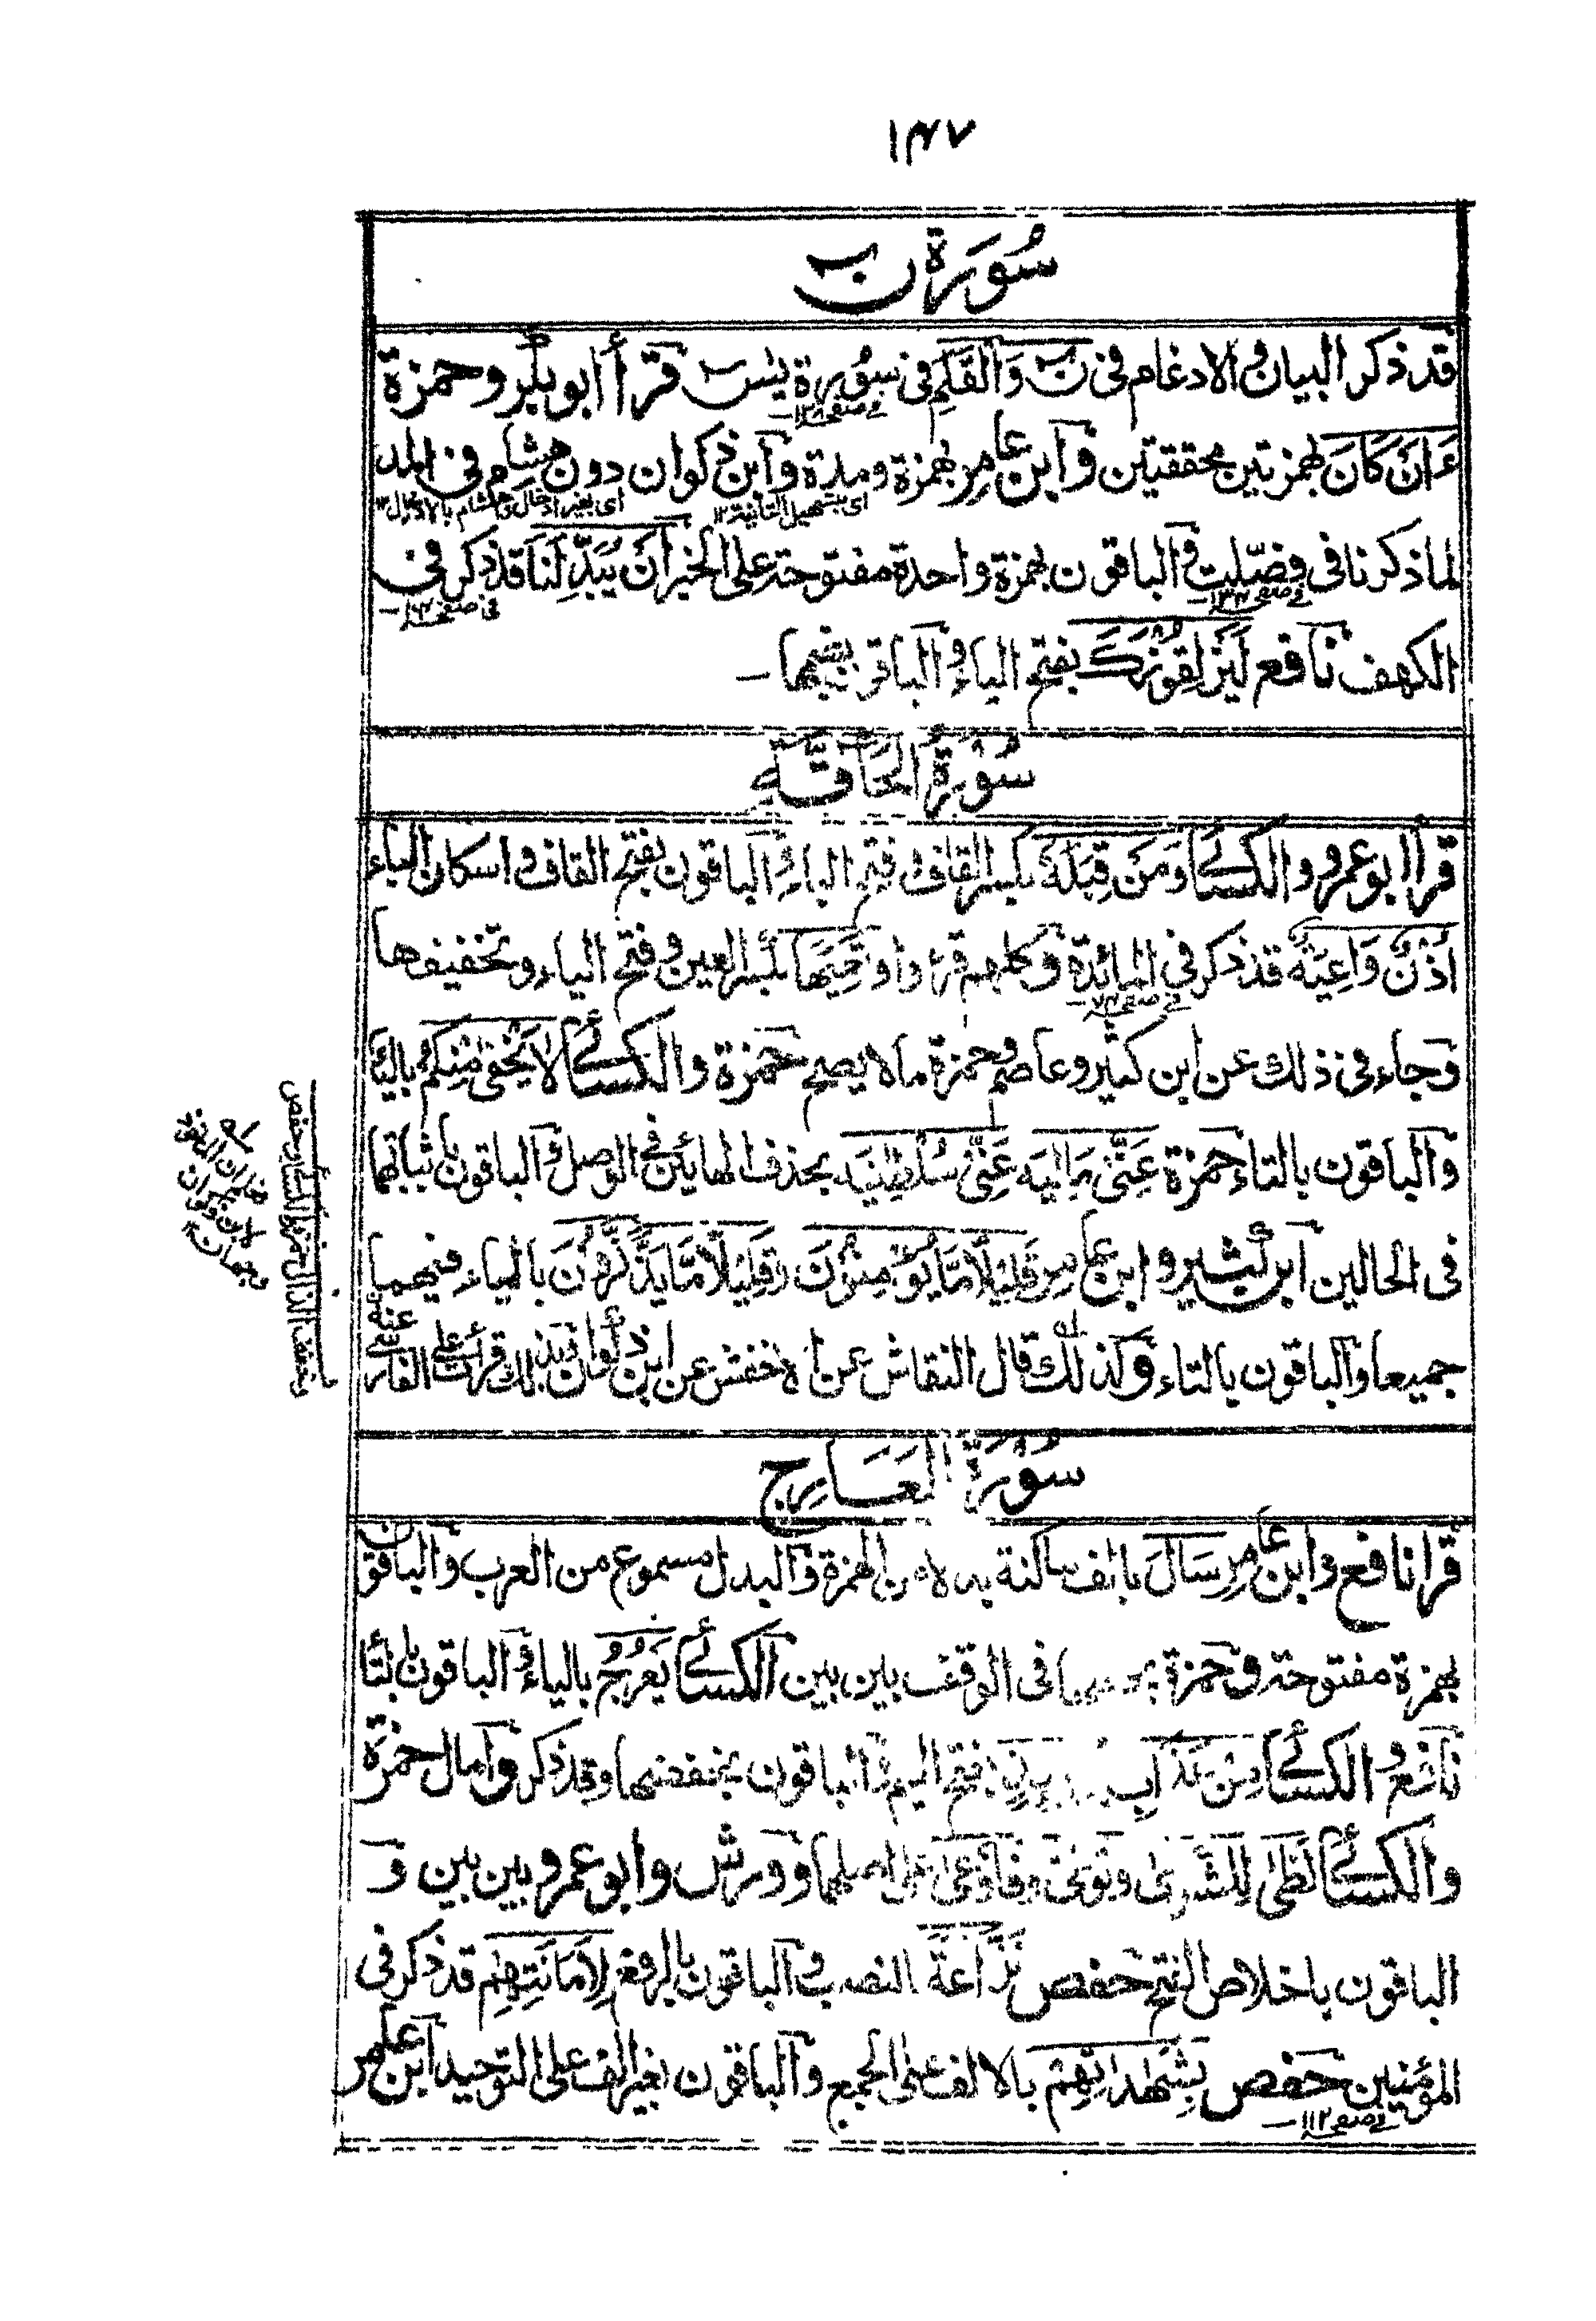 ١٤٧
سُورَة نٓ
قد ذكر البيان والادغام فى نٓ وَالْقَلَمِ فى سورة يٰسٓ قرأ أبو بكر وحمزة
فى صفحـ ١٣٨
ءَاَنْ كَانَ بهمزتين محققتين وابن عامر بهمزة ومدة وابن ذكوان دون هشام فى المد
اى بتسهيل الثانية ١٢
اى بغير ادخال وهشام بالادخال ١٢
لما ذكرنا فى فصّلت والباقون بهمزة واحدة مفتوحة على الخبر اَنْ يُبَدِّلَنَا قد ذكر فى
الكهف نافع لَيَزْلِقُونَكَ بفتح الياء والباقون بضمها ــ
سُورَةُ الْحَاقَّةِ
قرأ ابو عمرو والكسائى وَمَنْ قِبَلَهٗ بكسر القاف وفتح الباء والباقون بفتح القاف واسكان الباء
اُذُنٌ وَاعِيَةٌ قد ذكر فى المائدة وكلهم قرءوا وَتَعِيَهَا بكسر العين وفتح الياء وتخفيفها
وجاء فى ذلك عن ابن كثير وعاصم وحمزة مالا يصح حمزة والكسائى لَا يَخْفٰى مِنْكُمْ باليا
والباقون بالتاء حمزة عَنِّىْ مَالِيَهْ عَنِّىْ سُلْطٰنِيَهْ بحذف الهائين فى الوصل والباقون باثباتهما
فى الحالين ابن كثير وابن عامر قَلِيْلًا مَّا يُؤْمِنُوْنَ وقَلِيْلًا مَّا يَذَّكَّرُوْنَ بالياء فيهما
جميعا والباقون بالتاء وكذلك قال النقاش عن الاخفش عن ابن ذكوان وبذلك قرأت على الفارسى عنه
سُورَةُ الْمَعَارِجِ
قرأ نافع وابن عامر سَالَ بالف ساكنة بدلا من الهمزة والبدل مسموع من العرب والباقون
بهمزة مفتوحة وحمزة يجعلها فى الوقف بين بين الكسائى يَعْرُجُ بالياء والباقون بالتا
نافع والكسائى مِنْ عَذَابِ يومئذ بفتح الميم والباقون بخفضها وقد ذكر وامال حمزة
والكسائى لَظٰى لِلشَّوٰى وتَوَلّٰى وفَاَوْعٰى على اصلهما وورش وابو عمرو بين بين و
الباقون باخلاص الفتح حفص نَزَّاعَةً بالنصب والباقون بالرفع لِاَمَانَتِهِمْ قد ذكر فى
المؤمنين حفص بِشَهٰدٰتِهِمْ بالالف على الجمع والباقون بغير الف على التوحيد ابن عامر
فى صفحـ ١١٢